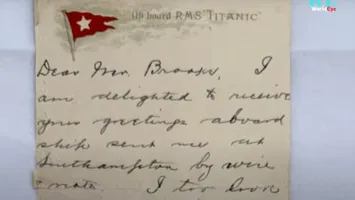 World Eye
On board R.M.S. "TITANIC"
Dear Mr. Brooks, I
am delighted to receive
your greetings aboard
ship sent me at
Southampton by wire
& note. I too look